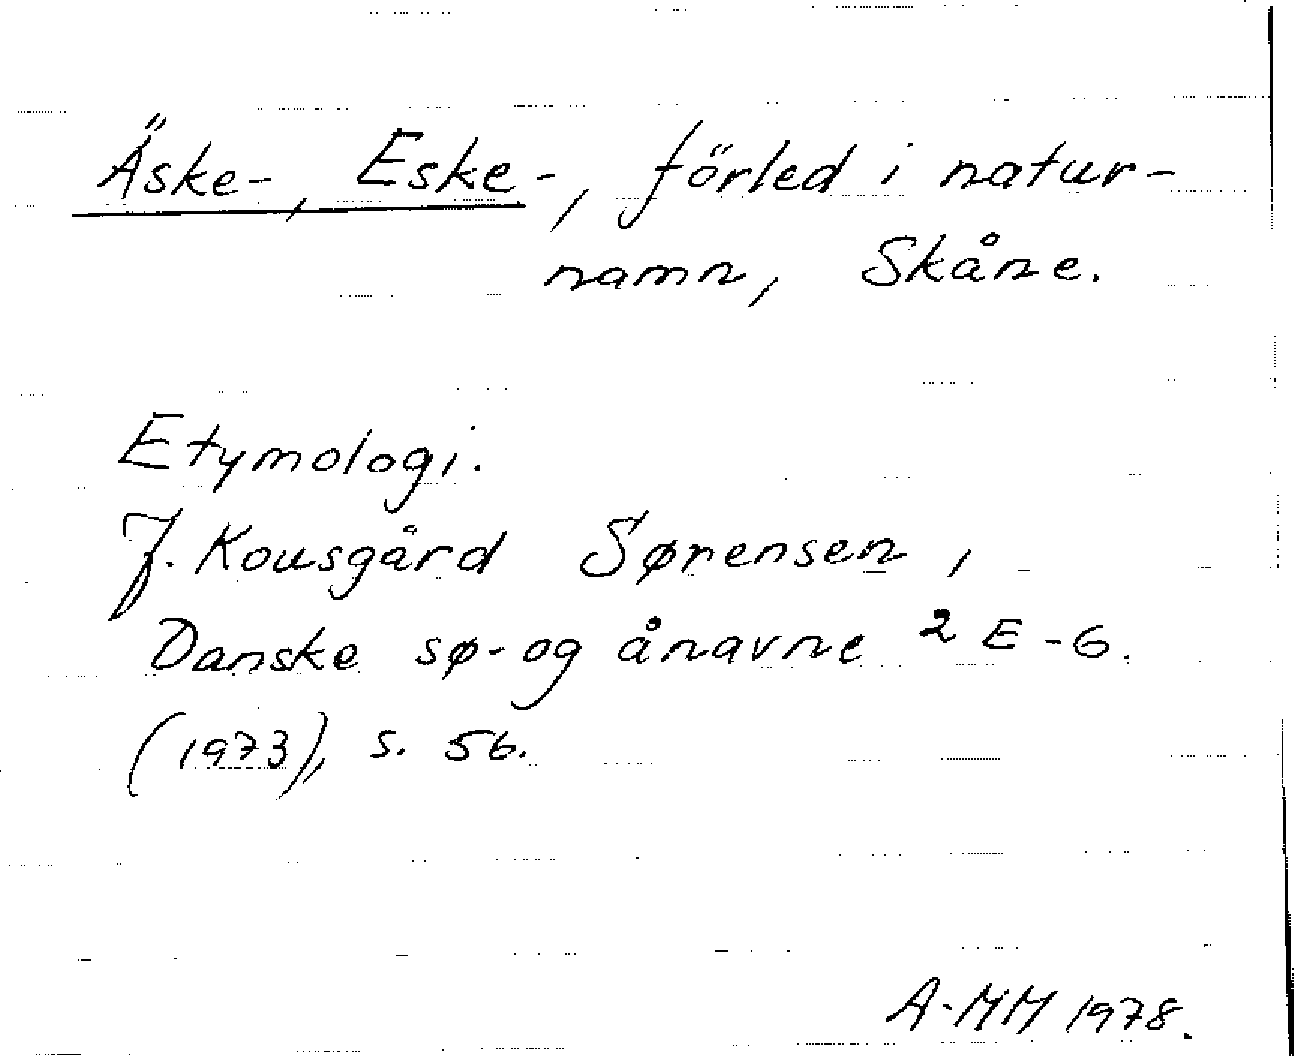 Äske-, Eske-, förled i natur-
namn, Skåne.
Etymologi.
J. Kousgård Sørensen,
Danske sø- og ånavne 2 E-G.
(1973), s. 56.
A-MM 1978.